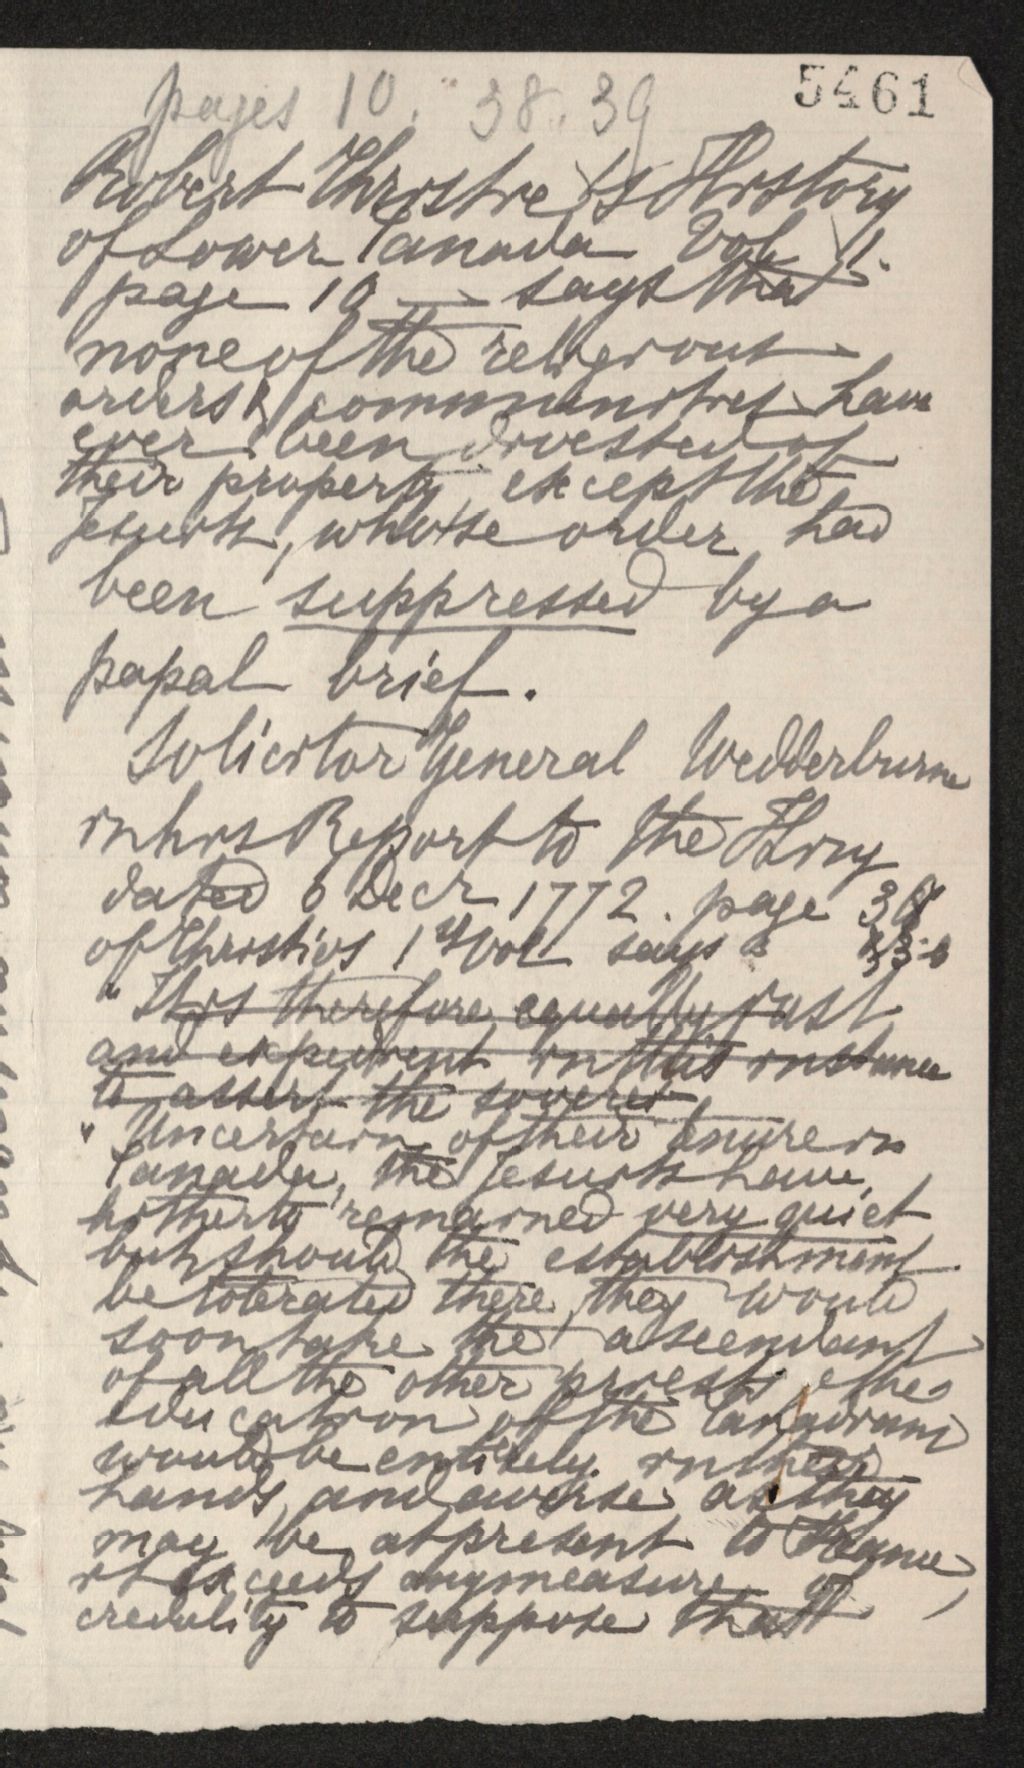 5461
pages 10. 38. 39
Robert Christie's History
of Lower Canada Vol 1.
page 10 — says that
none of the religious
orders & communities have
ever been divested of
their property except the
Jesuits, whose order had
been suppressed by a
papal brief.
Solicitor General Wedderburne
in his Report to the King
dated 6 Decr 1772. page 38
of Christies 1st Vol says
"It is therefore equally just
and expedient in this instance
to assert the soverei
"Uncertain of their tenure in
Canada, the Jesuits have
hitherto remained very quiet
but should the establishment
be tolerated there, they would
soon take the ascendant
of all the other priests, the
education of the Canadians
would be entirely in their
hands, and averse as they
may be at present to France,
it exceeds any measure of
credulity to suppose that